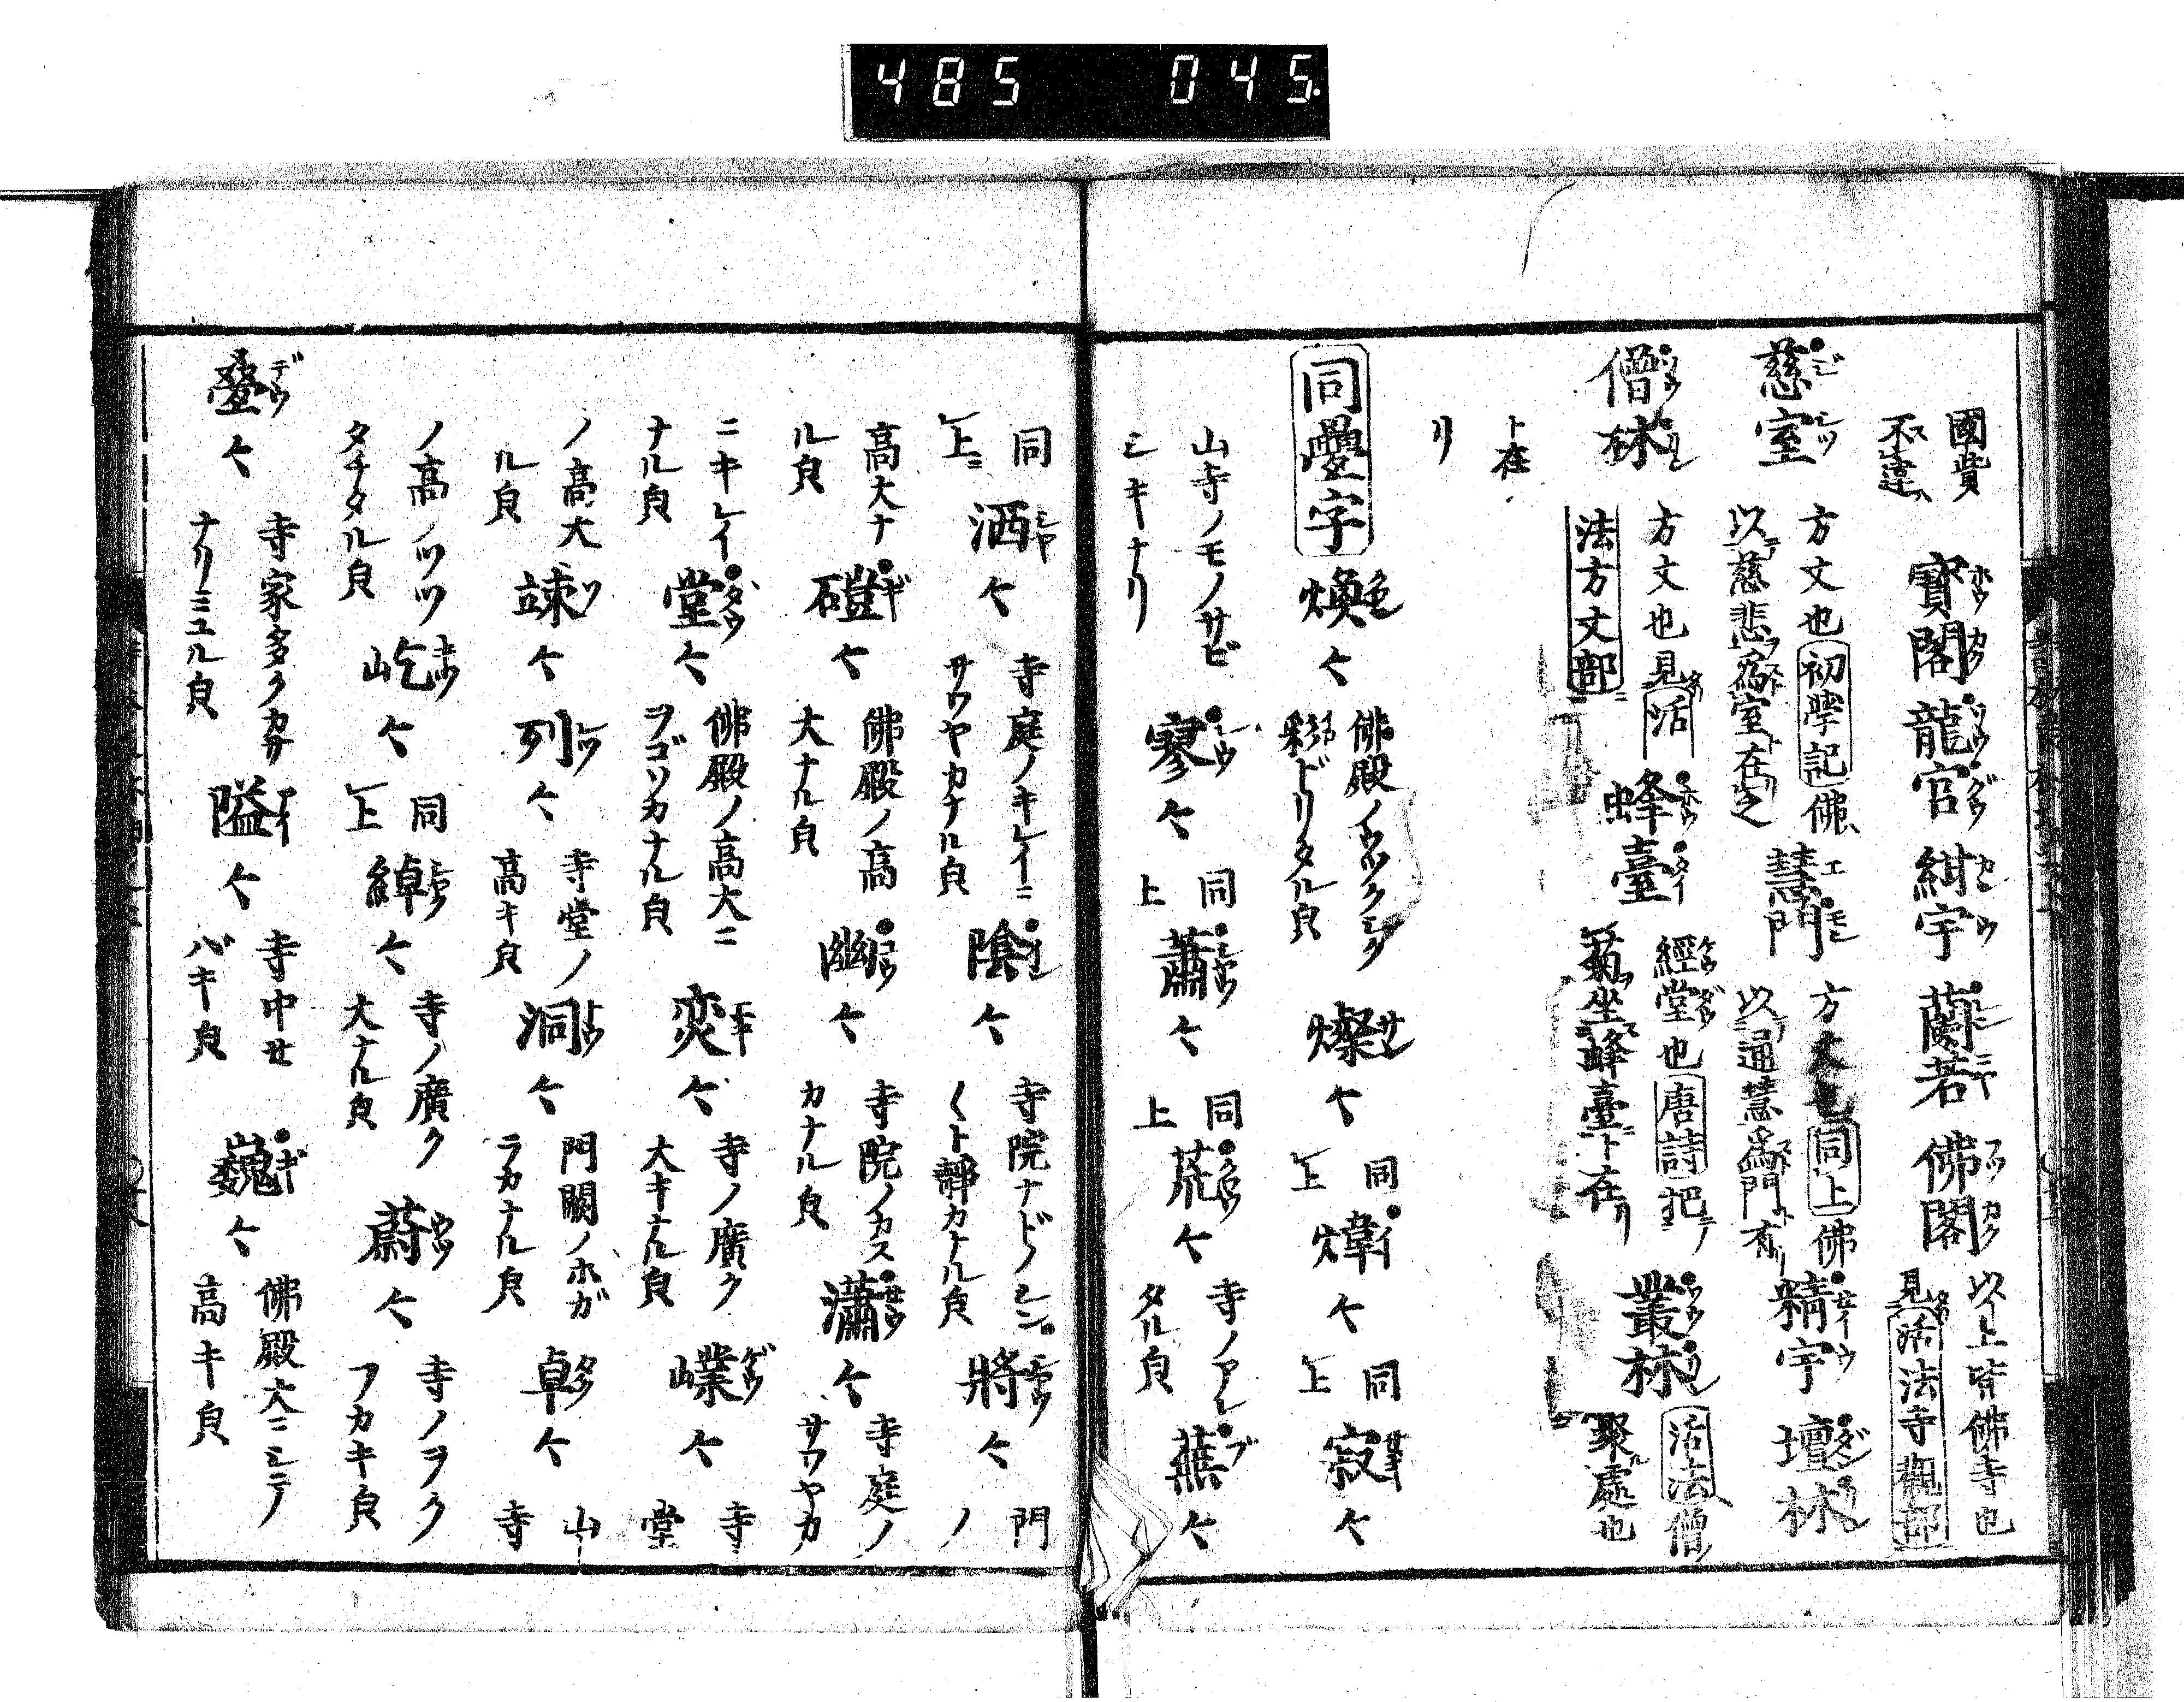 485 045.
國費
不違
寶閣龍宮紺宇蘭若佛閣
以上皆佛寺也
見活法寺觀部
慈室
方丈也初學記佛
以慈悲爲室在之
慧門
方丈也同上佛
以通慧爲門有
精宇壇林
僧林
方丈也見活
法方丈部
蜂臺
經堂也唐詩把
菊坐蜂臺ト在リ
叢林
活法僧
聚處也
ト在
リ
同疊字
煥々
佛殿ノウツクシク
彩ドリタル皃
燦々
同
上
煒々
同
上
寂々
山寺ノモノサビ
シキナリ
寥々
同
上
蕭々
同
上
荒々
寺ノアレ
タル皃
蕪々
同
上ニ
洒々
寺庭ノキレイニ
サワヤカナル皃
陰々
寺院ナドノシン
〱ト靜カナル皃
將々
門
ノ
高大ナ
ル皃
磑々
佛殿ノ高
大ナル皃
幽々
寺院ノカス
カナル皃
瀟々
寺庭ノ
サワヤカ
ニキレイ
ナル皃
堂々
佛殿ノ高大ニ
ヲゴソカナル皃
奕々
寺ノ廣ク
大キナル皃
嶫々
寺
堂
ノ高大
ル皃
竦々列々
寺堂ノ
高キ皃
洞々
門關ノホガ
ラカナル皃
卓々
山
寺
ノ高ノツツ
タチタル皃
屹々
同
上
綽々
寺ノ廣ク
大ナル皃
蔚々
寺ノヲク
フカキ皃
疊々
寺家多クカサ
ナリミユル皃
隘々
寺中セ
バキ皃
巍々
佛殿大ニシテ
高キ皃